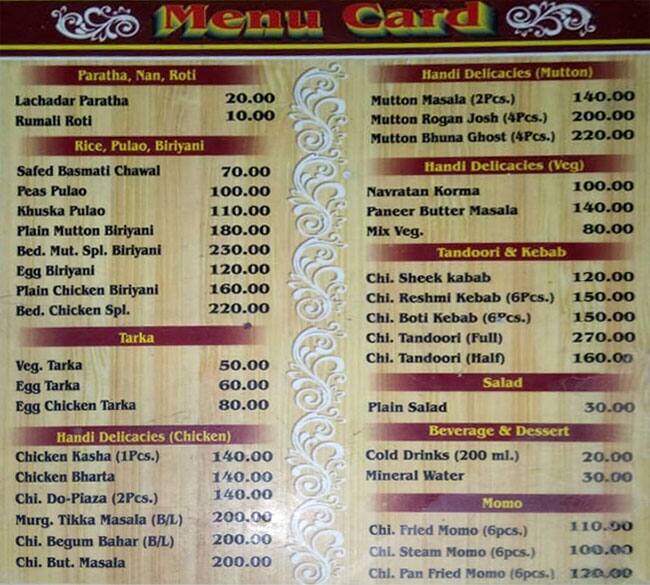 Menu Card
Paratha, Nan, Roti
Lachadar Paratha 20.00
Rumali Roti 10.00
Rice, Pulao, Biriyani
Safed Basmati Chawal 70.00
Peas Pulao 100.00
Khuska Pulao 110.00
Plain Mutton Biriyani 180.00
Bed. Mut. Spl. Biriyani 230.00
Egg Biriyani 120.00
Plain Chicken Biriyani 160.00
Bed. Chicken Spl. 220.00
Tarka
Veg. Tarka 50.00
Egg Tarka 60.00
Egg Chicken Tarka 80.00
Handi Delicacies (Chicken)
Chicken Kasha (1Pcs.) 140.00
Chicken Bharta 140.00
Chi. Do-Piaza (2Pcs.) 140.00
Murg. Tikka Masala (B/L) 200.00
Chi. Begum Bahar (B/L) 200.00
Chi. But. Masala 200.00
Handi Delicacies (Mutton)
Mutton Masala (2Pcs.) 140.00
Mutton Rogan Josh (4Pcs.) 200.00
Mutton Bhuna Ghost (4Pcs.) 220.00
Handi Delicacies (Veg)
Navratan Korma 100.00
Paneer Butter Masala 140.00
Mix Veg. 80.00
Tandoori & Kebab
Chi. Sheek kabab 120.00
Chi. Reshmi Kebab (6Pcs.) 150.00
Chi. Boti Kebab (6Pcs.) 150.00
Chi. Tandoori (Full) 270.00
Chi. Tandoori (Half) 160.00
Salad
Plain Salad 30.00
Beverage & Dessert
Cold Drinks (200 ml.) 20.00
Mineral Water 30.00
Momo
Chi. Fried Momo (6pcs.) 110.00
Chi. Steam Momo (6pcs.) 100.00
Chi. Pan Fried Momo (6pcs.) 120.00